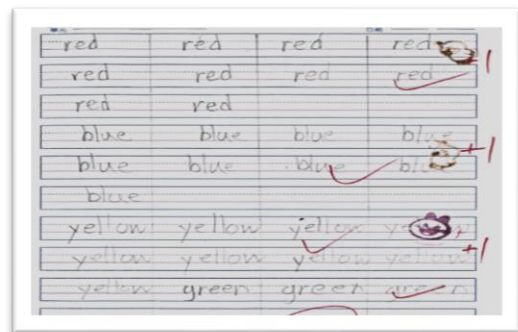 red red red red +1
red red red red
red red
blue blue blue blue +1
blue blue blue blue
blue
yellow yellow yellow yellow
yellow yellow yellow yellow +1
yellow green green green